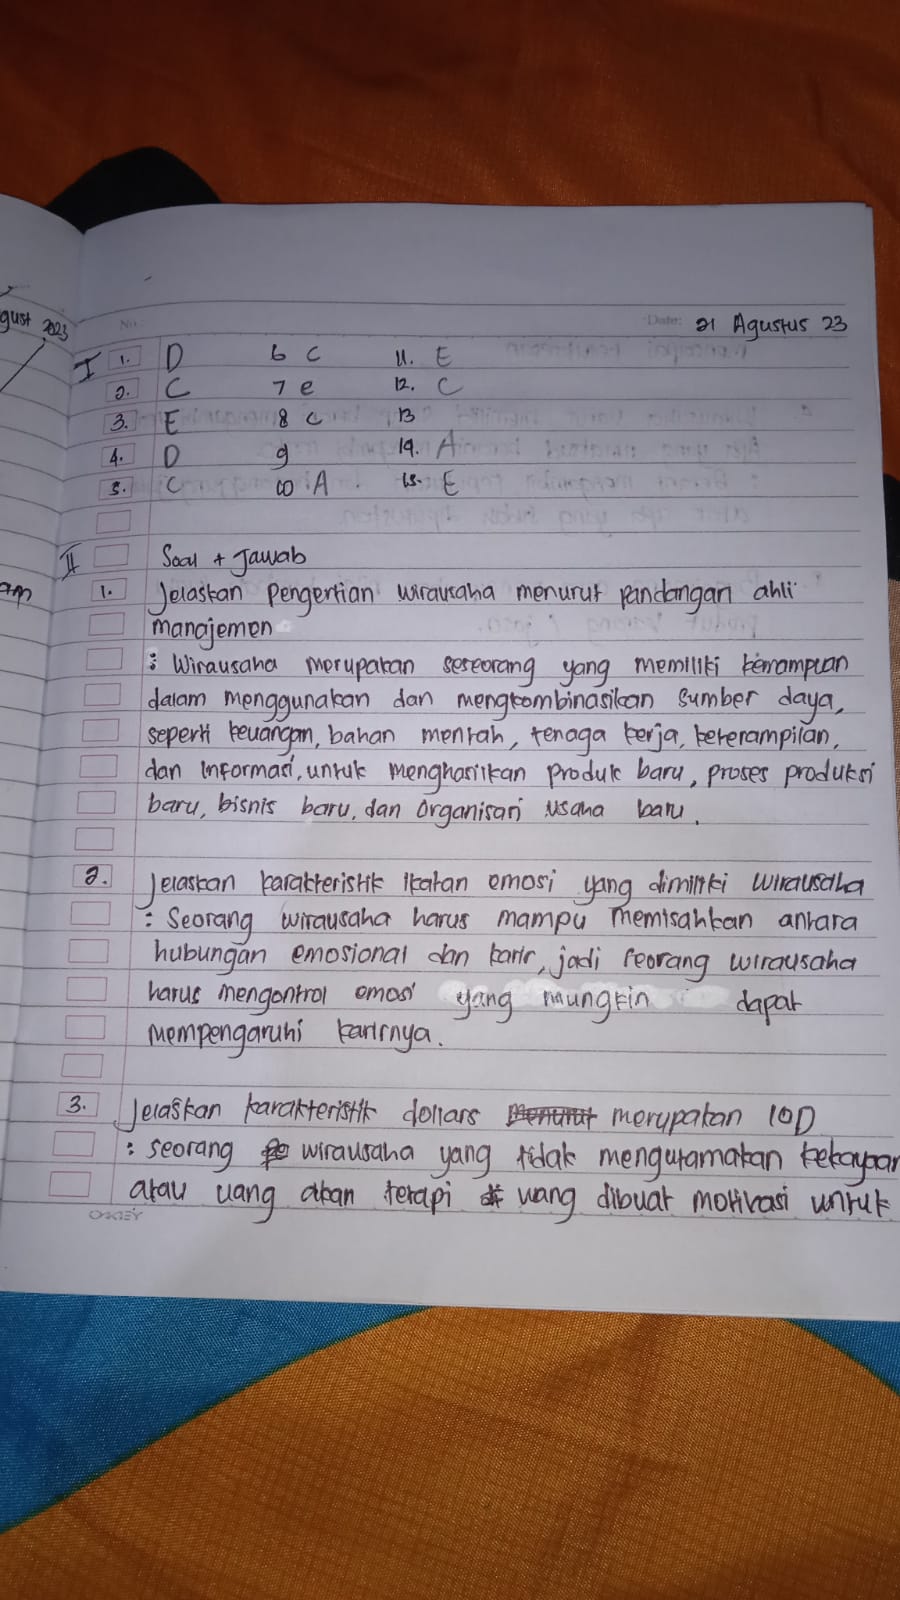 gust 2023
No.
Date: 21 Agustus 23
I 1. D 6 C 11. E
2. C 7 e 12. C
3. E 8 C 13
4. D 9 14. A
5. C 10 A 15. E
II Soal + Jawab
am
1. Jelaskan pengertian wirausaha menurut pandangan ahli
manajemen
: Wirausaha merupakan seseorang yang memiliki kemampuan
dalam menggunakan dan mengkombinasikan sumber daya,
seperti keuangan, bahan mentah, tenaga kerja, keterampilan,
dan informasi, untuk menghasilkan produk baru, proses produksi
baru, bisnis baru, dan organisasi usaha baru.
2. Jelaskan karakteristik ikatan emosi yang dimiliki wirausaha
: Seorang wirausaha harus mampu memisahkan antara
hubungan emosional dan karir, jadi seorang wirausaha
harus mengontrol emosi yang mungkin dapat
mempengaruhi karirnya.
3. Jelaskan karakteristik dollars menurut merupakan 10D
: seorang wirausaha yang tidak mengutamakan kekayaan
atau uang akan tetapi uang dibuat motivasi untuk
OKEY